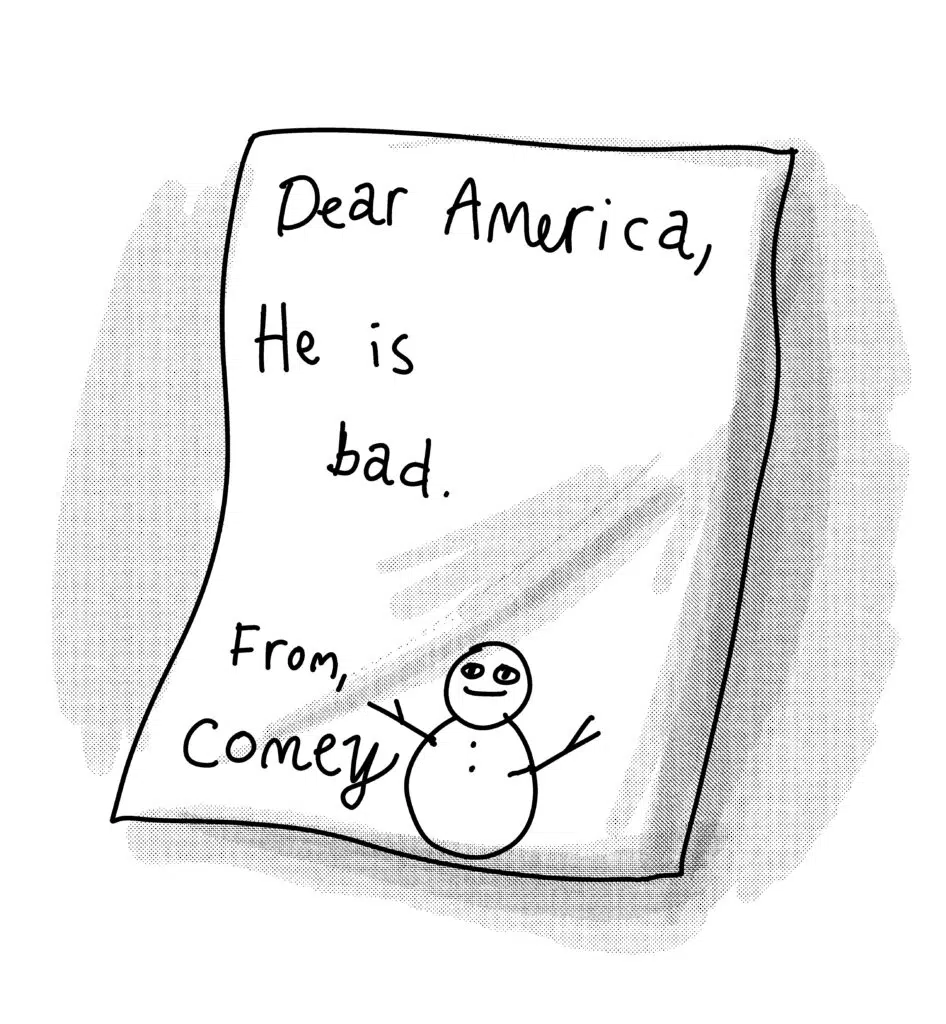 Dear America,
He is
bad.
From,
Comey